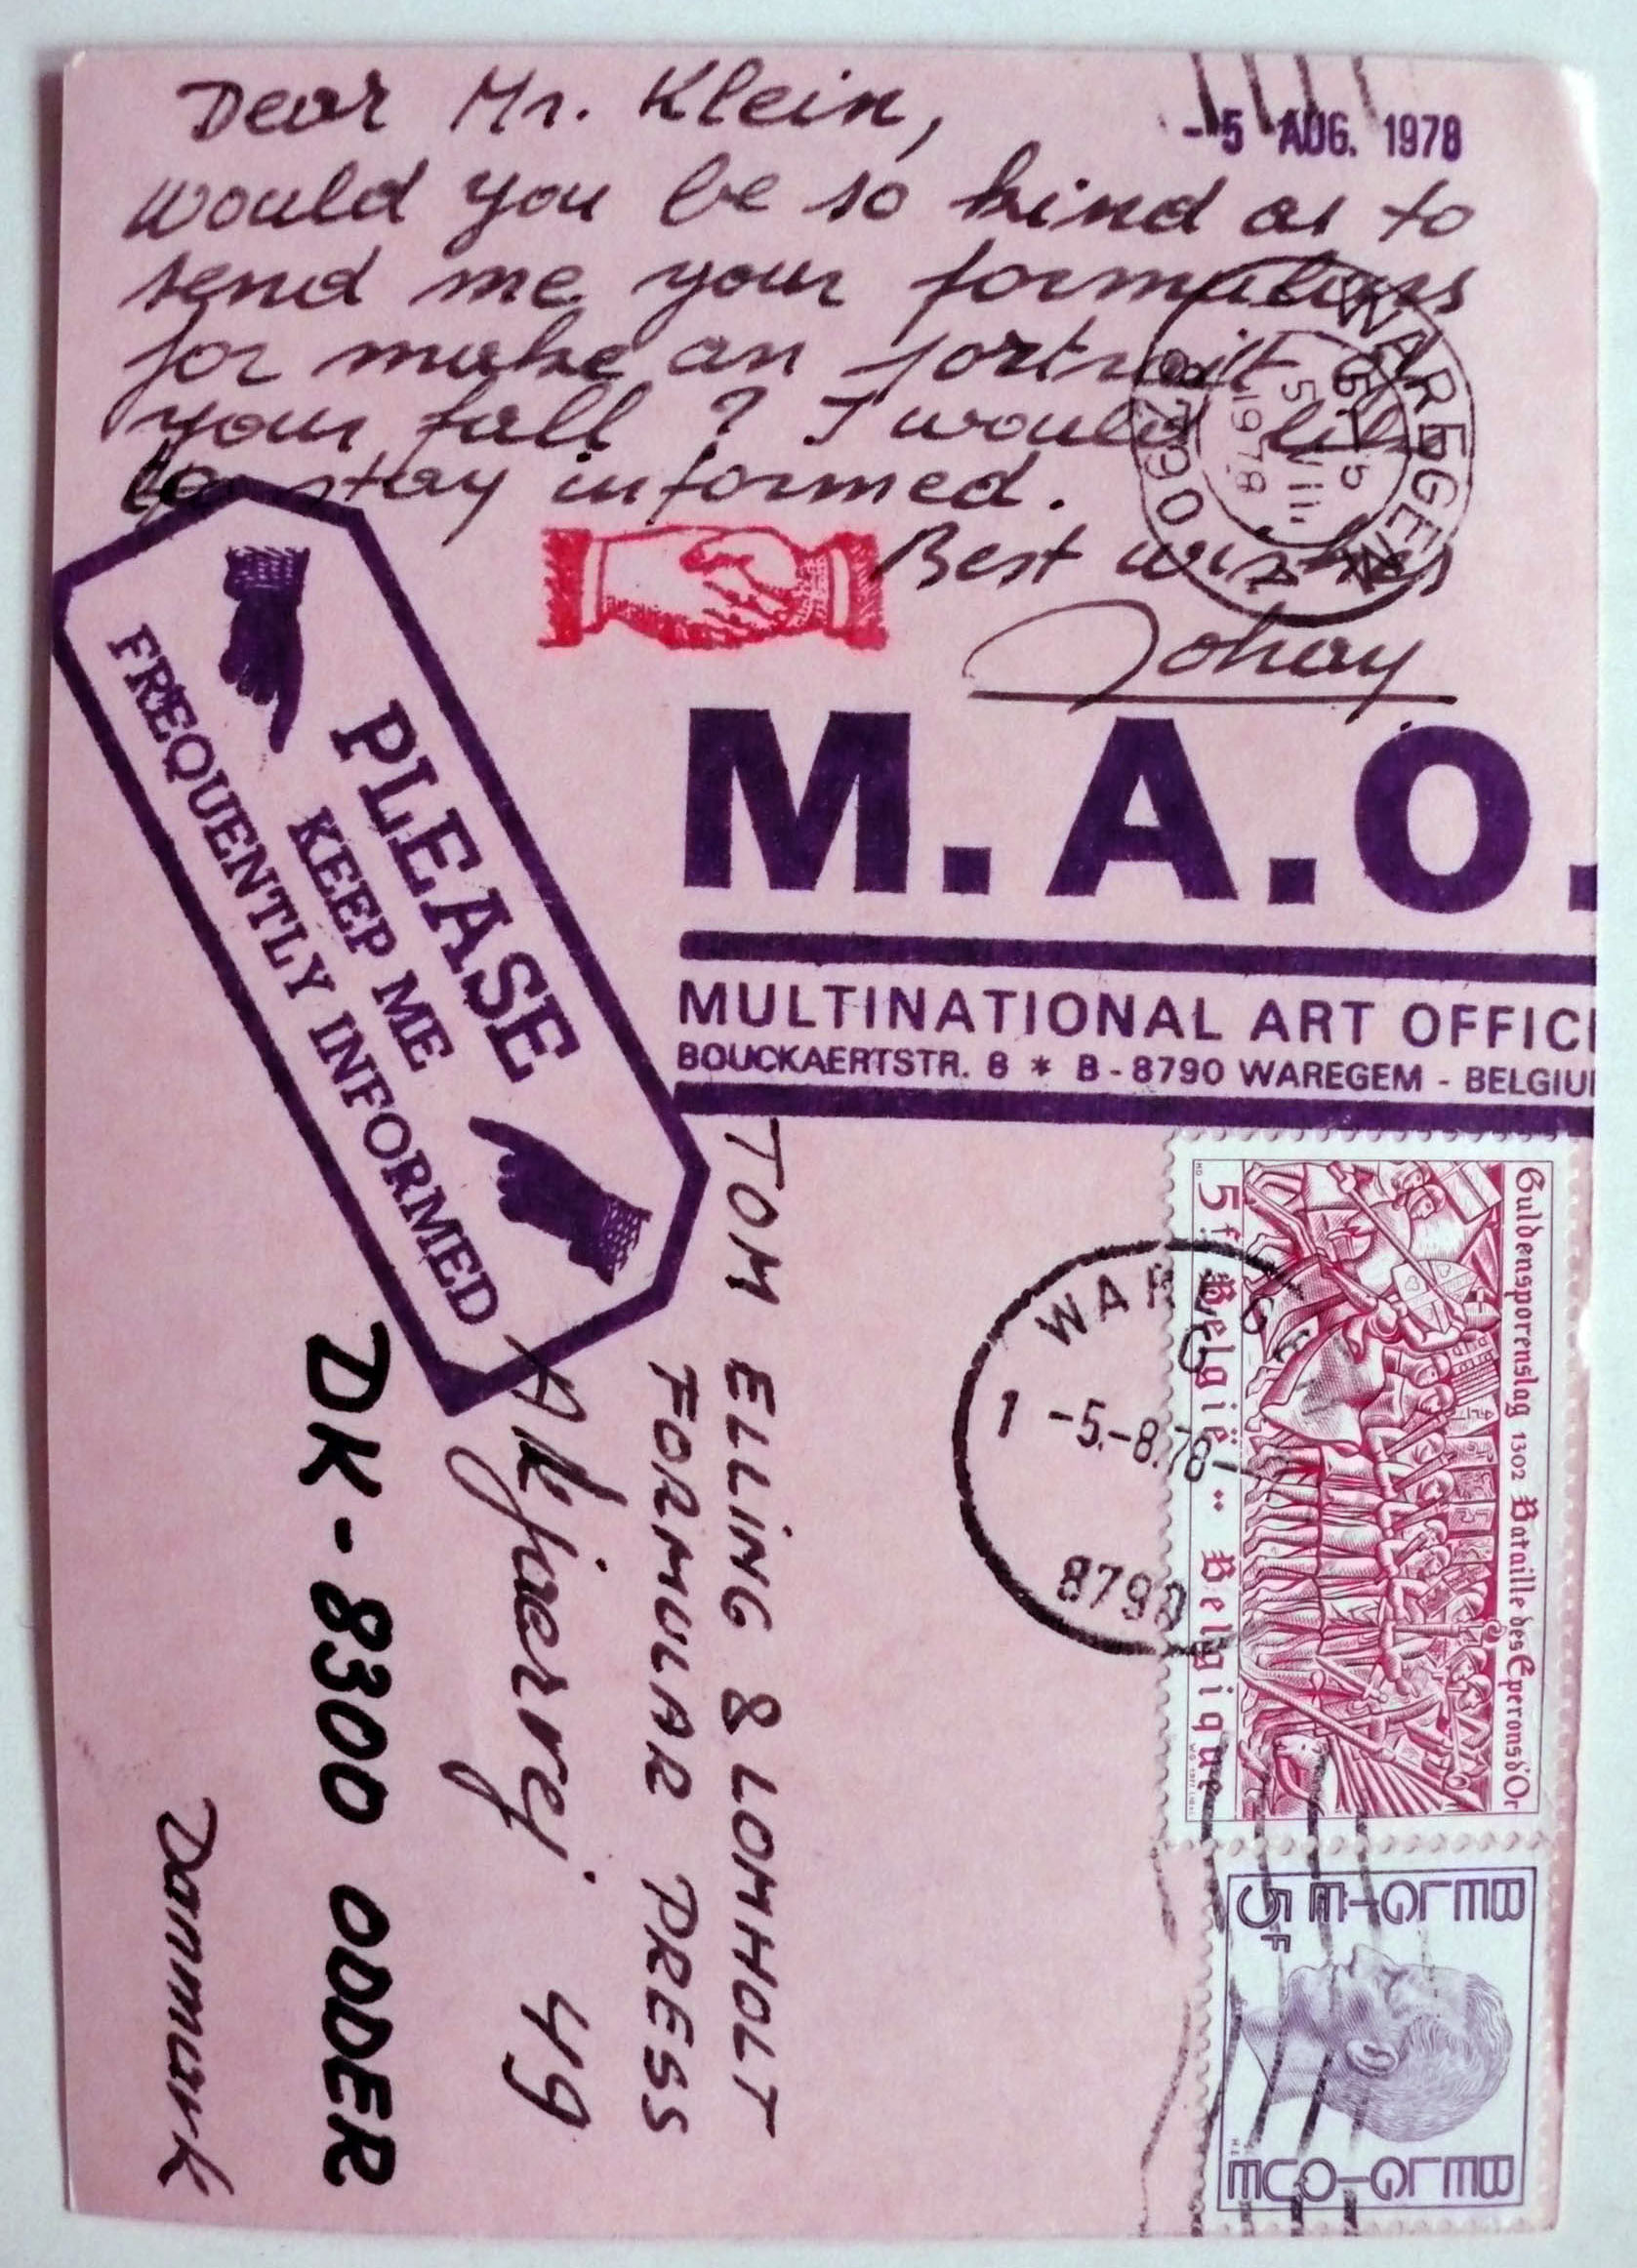 Dear Mr. Klein,
- 5 AUG. 1978
would you be so kind as to
send me your formulars
for make an portrait of
your fall ? I would like
to stay informed.
Best wishes
Johan
WAREGEM
8790
PLEASE
KEEP ME
FREQUENTLY INFORMED
M.A.O.
MULTINATIONAL ART OFFIC
BOUCKAERTSTR. 8 * B - 8790 WAREGEM - BELGIU
TOM ELLING & LOMHOLT
FORMULAR PRESS
Akjaervej 49
DK - 8300 ODDER
Danmark
Guldensporenslag 1302 Bataille des Eperons d'Or
5f België Belgique
1 -5.-8.78
BELGIE
5F
BELGIQUE